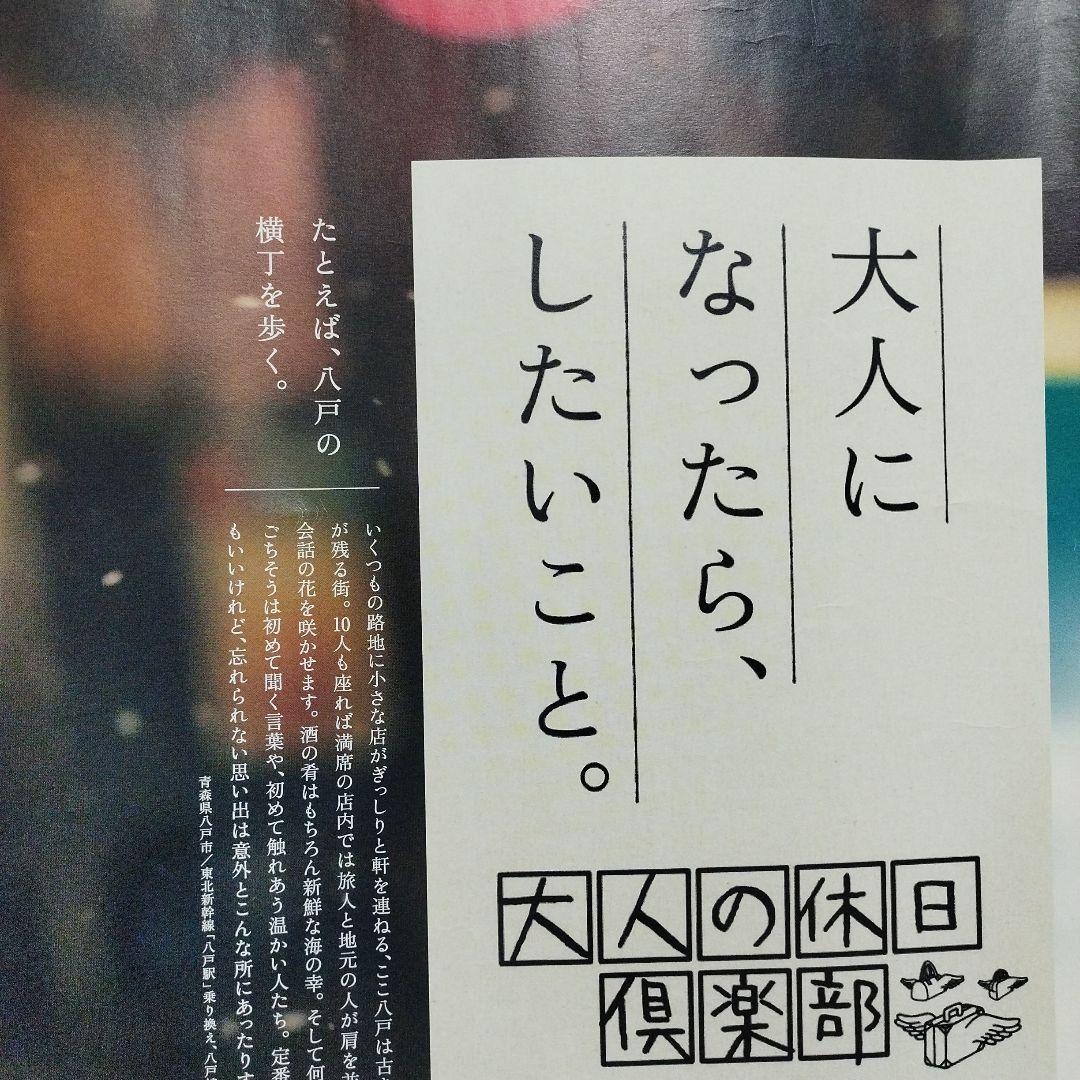 大人に
なったら、
したいこと。
大人の休日
倶楽部
たとえば、八戸の
横丁を歩く。
いくつもの路地に小さな店がぎっしりと軒を連ねる、ここ八戸は古き
が残る街。10人も座れば満席の店内では旅人と地元の人が肩を並
会話の花を咲かせます。酒の肴はもちろん新鮮な海の幸。そして何
ごちそうは初めて聞く言葉や、初めて触れあう温かい人たち。定番
もいいけれど、忘れられない思い出は意外とこんな所にあったりす
青森県八戸市／東北新幹線「八戸駅」乗り換え、八戸